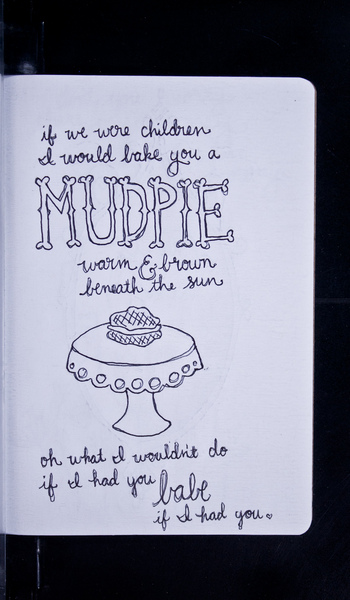 if we were children
I would bake you a
MUDPIE
warm & brown
beneath the sun
oh what I wouldn't do
if I had you babe
if I had you